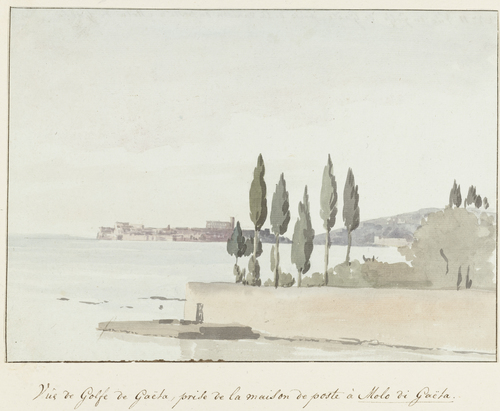 Vüe de Golfe de Gaëta, prise de la maison de poste à Molo di Gaëta.